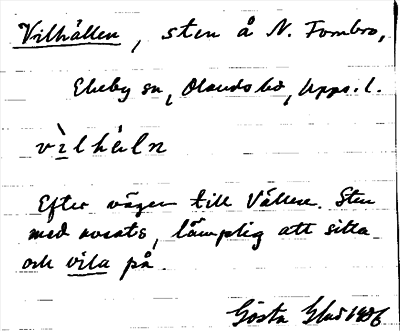 Vilhällen, sten å N. Tombro,
Ekeby sn, Olands hd, Upps. l.
vìlhàln
Efter vägen till Vällen. Sten
med avsats, lämplig att sitta
och vila på.
Gösta